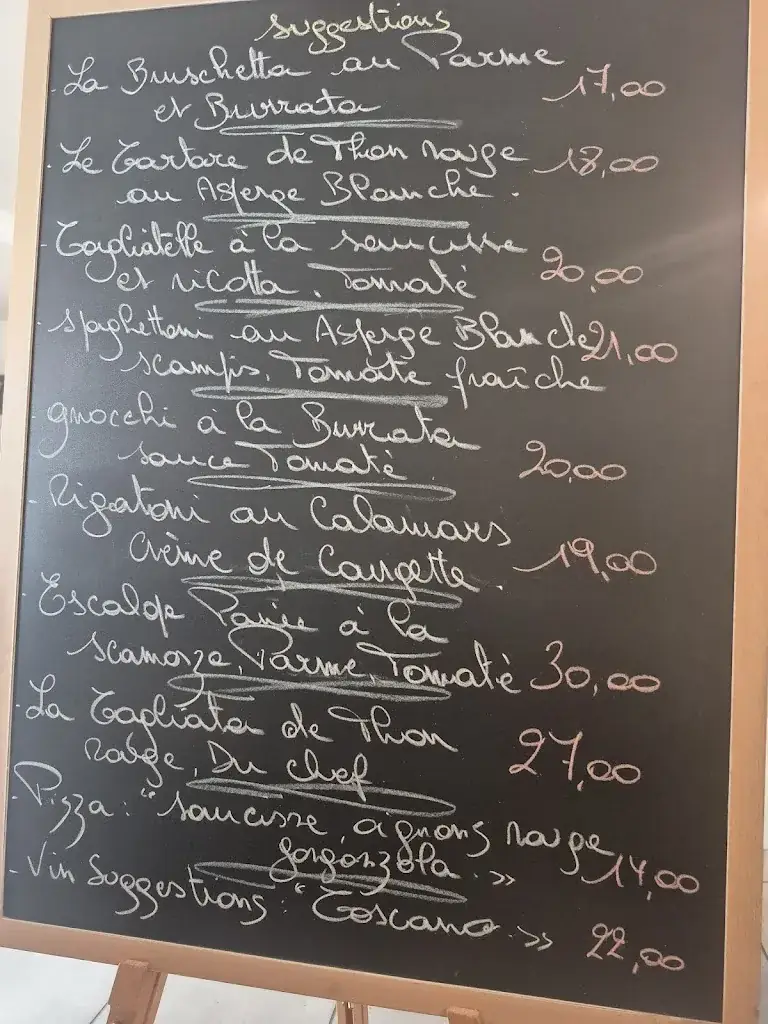 suggestions
- La Bruschetta au Parme 17,00
et Burrata
- Le Tartare de Thon rouge 18,00
au Asperge Blanche.
- Tagliatelle à la saucisse
et ricotta, Tomate 20,00
- spaghettoni au Asperge Blanche 21,00
scampis, Tomate fraîche
- gnocchi à la Burrata
sauce Tomate 20,00
- Rigatoni au Calamars
Crème de Courgette. 19,00
- Escalope Panée à la
scamorze, Parme, Tomate 30,00
- La Tagliata de Thon
rouge, Du chef 27,00
- Pizza : "saucisse, oignons rouge
gorgonzola. » 14,00
- Vin Suggestions : "Toscano. » 22,00